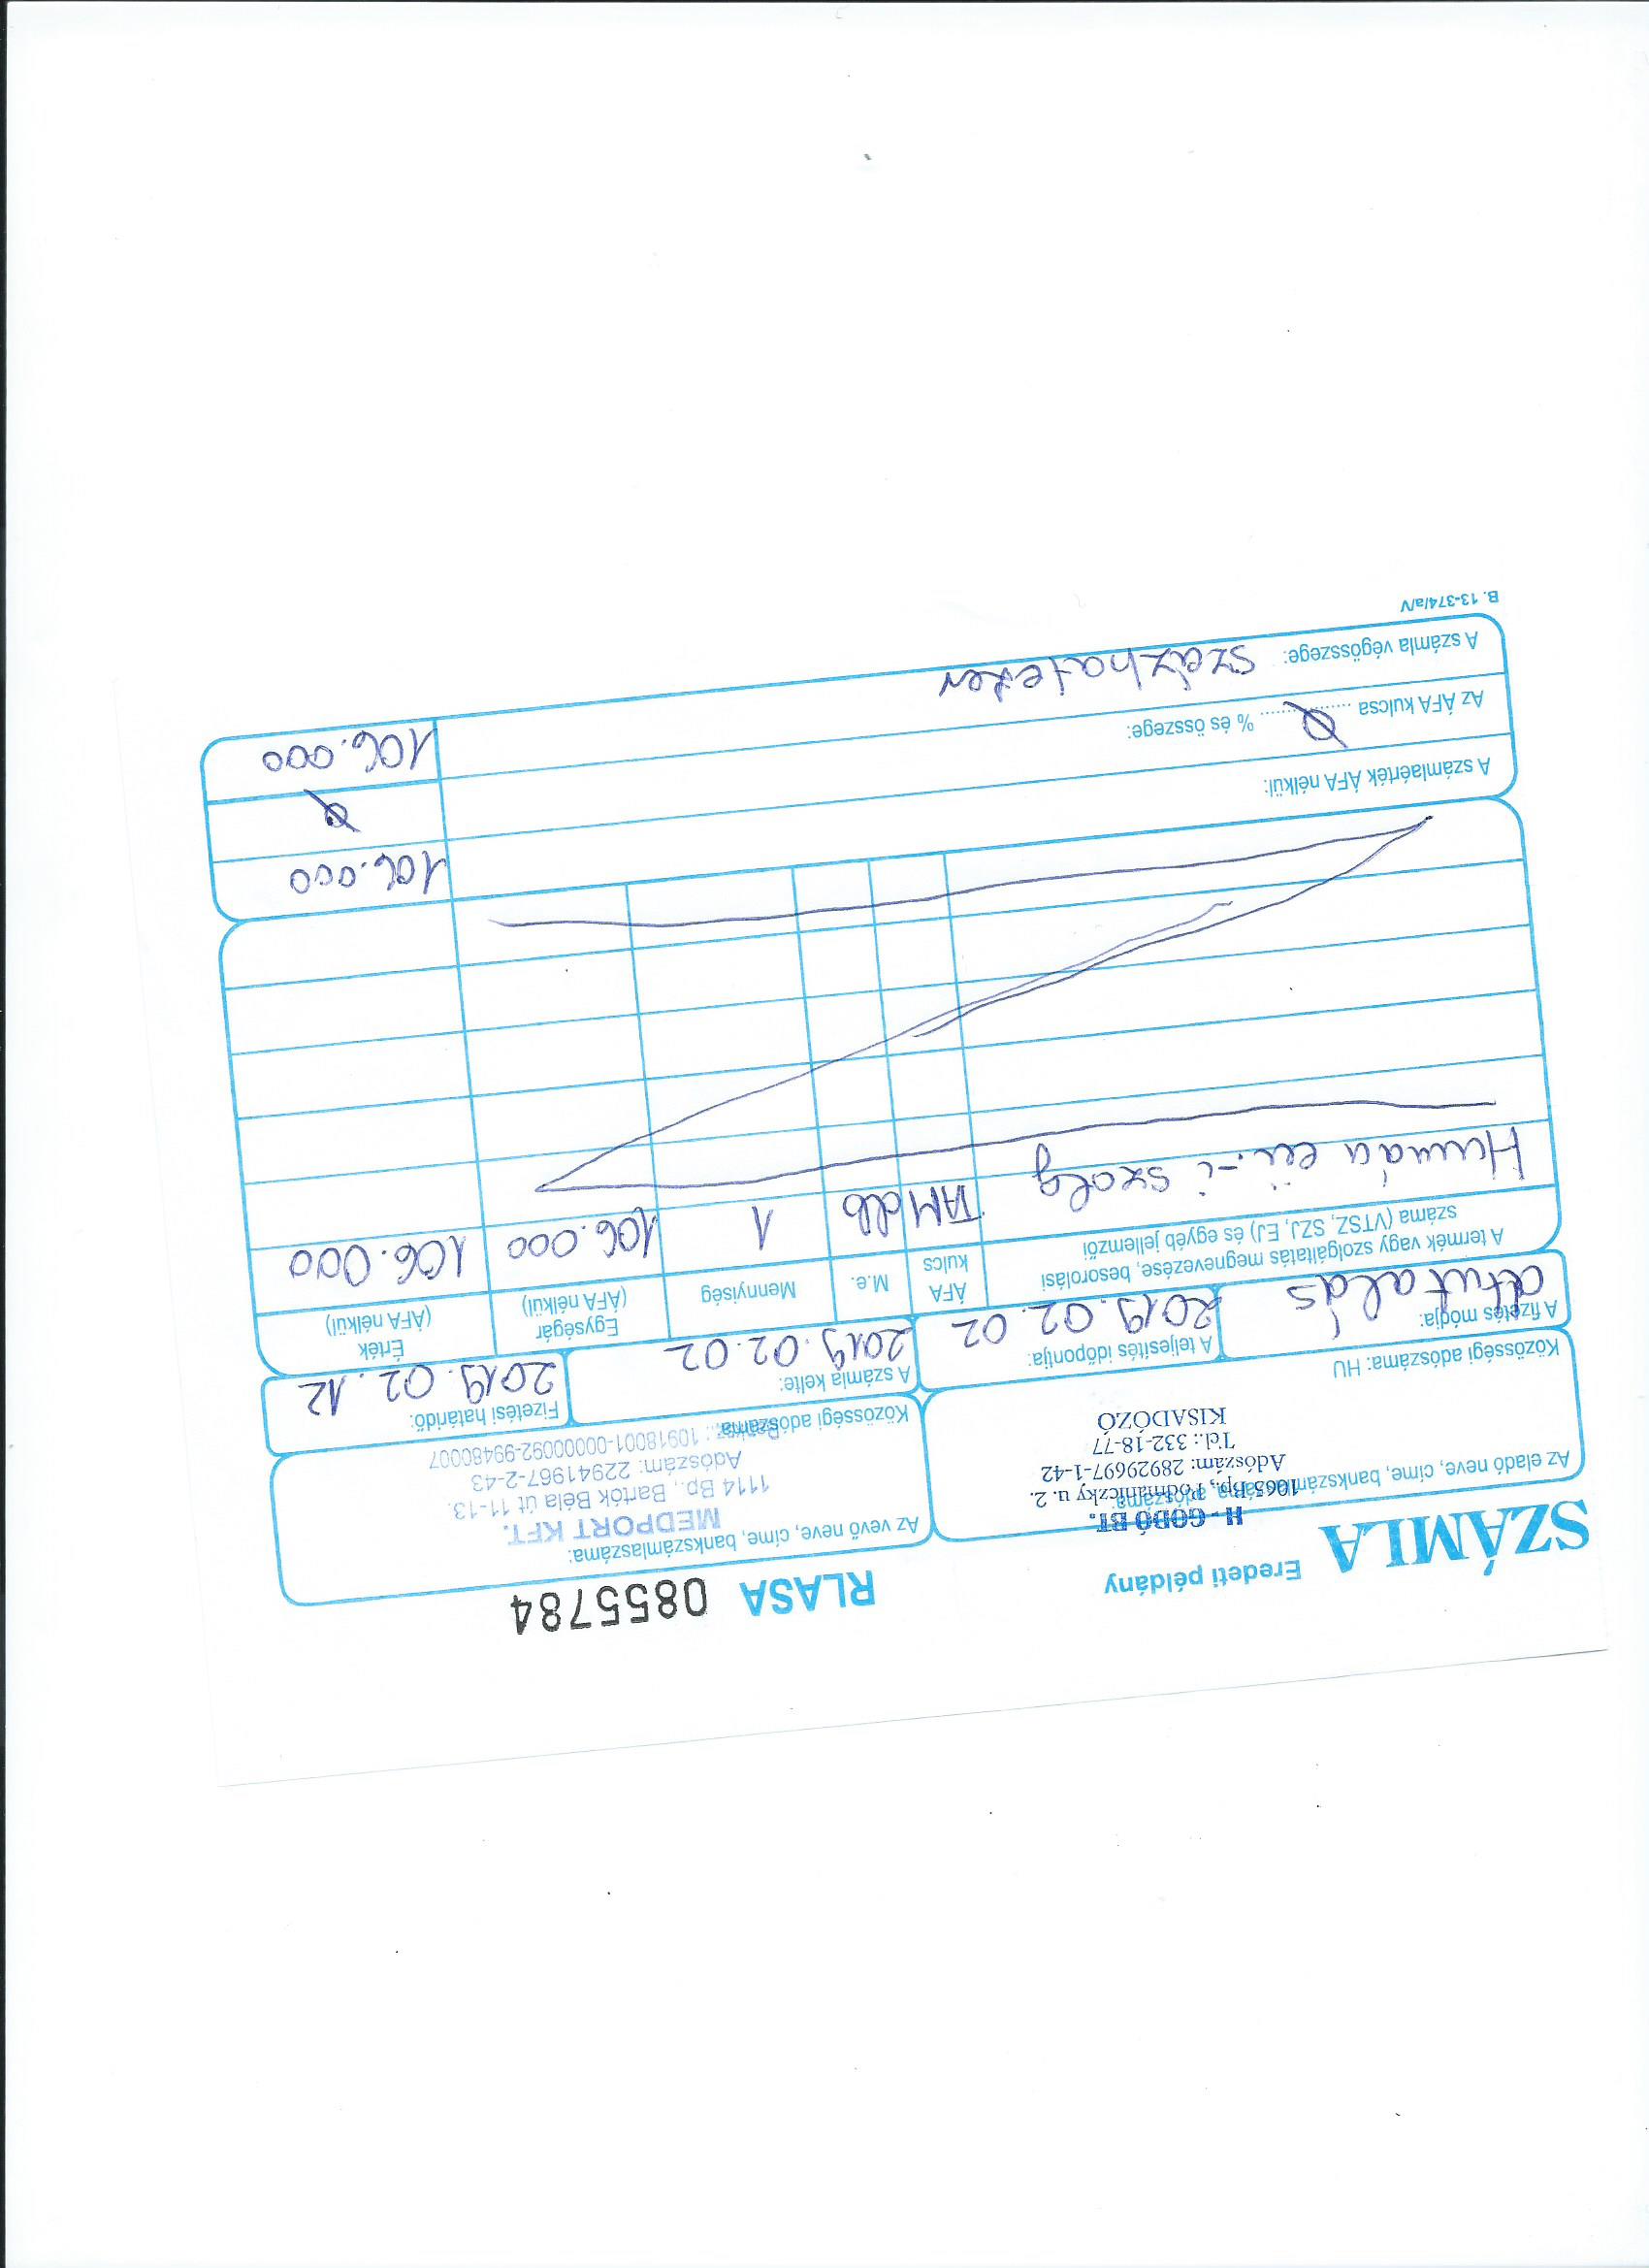 SZÁMLA Eredeti példány RLASA 0855784
Az eladó neve, címe, bankszámlaszáma, adószáma:
H - GODÓ BT.
1065 Bp., Podmaniczky u. 2.
Adószám: 28929697-1-42
Tel.: 332-18-77
KISADÓZÓ
Közösségi adószáma: HU
Az vevő neve, címe, bankszámlaszáma:
MEDPORT KFT.
1114 Bp., Bartók Béla út 11-13.
Adószám: 22941967-2-43
10918001-00000092-99480007
Közösségi adószáma:
A fizetés módja: átutalás
A teljesítés időpontja: 2019. 02. 02
A számla kelte: 2019. 02. 02
Fizetési határidő: 2019. 02. 12
A termék vagy szolgáltatás megnevezése, besorolási száma (VTSZ, SZJ, EJ) és egyéb jellemzői
ÁFA kulcs
M.e.
Mennyiség
Egységár (ÁFA nélkül)
Érték (ÁFA nélkül)
Humán eü.-i szolg TAM db 1 106.000 106.000
A számlaérték ÁFA nélkül: 106.000
Az ÁFA kulcsa 0 % és összege: 0
A számla végösszege: százhatezer 106.000
B. 13-374/a/V